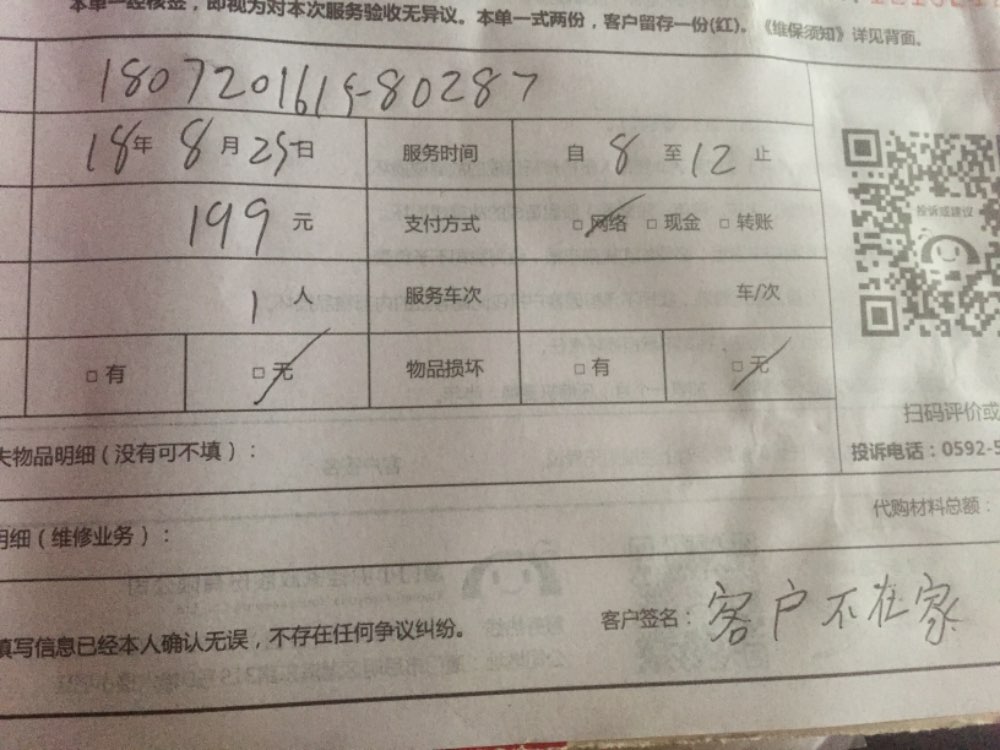 本单一经核签，即视为对本次服务验收无异议。本单一式两份，客户留存一份(红)。《维保须知》详见背面。
1807201619-80287
18年 8月25日 服务时间 自 8 至 12 止
199 元 支付方式 □ 网络 □ 现金 □ 转账
投诉或建议
1 人 服务车次 车/次
□ 有 □ 无 物品损坏 □ 有 □ 无
扫码评价或
失物品明细（没有可不填）：
投诉电话：0592-5
代购材料总额：
明细（维修业务）：
填写信息已经本人确认无误，不存在任何争议纠纷。
客户签名：客户不在家